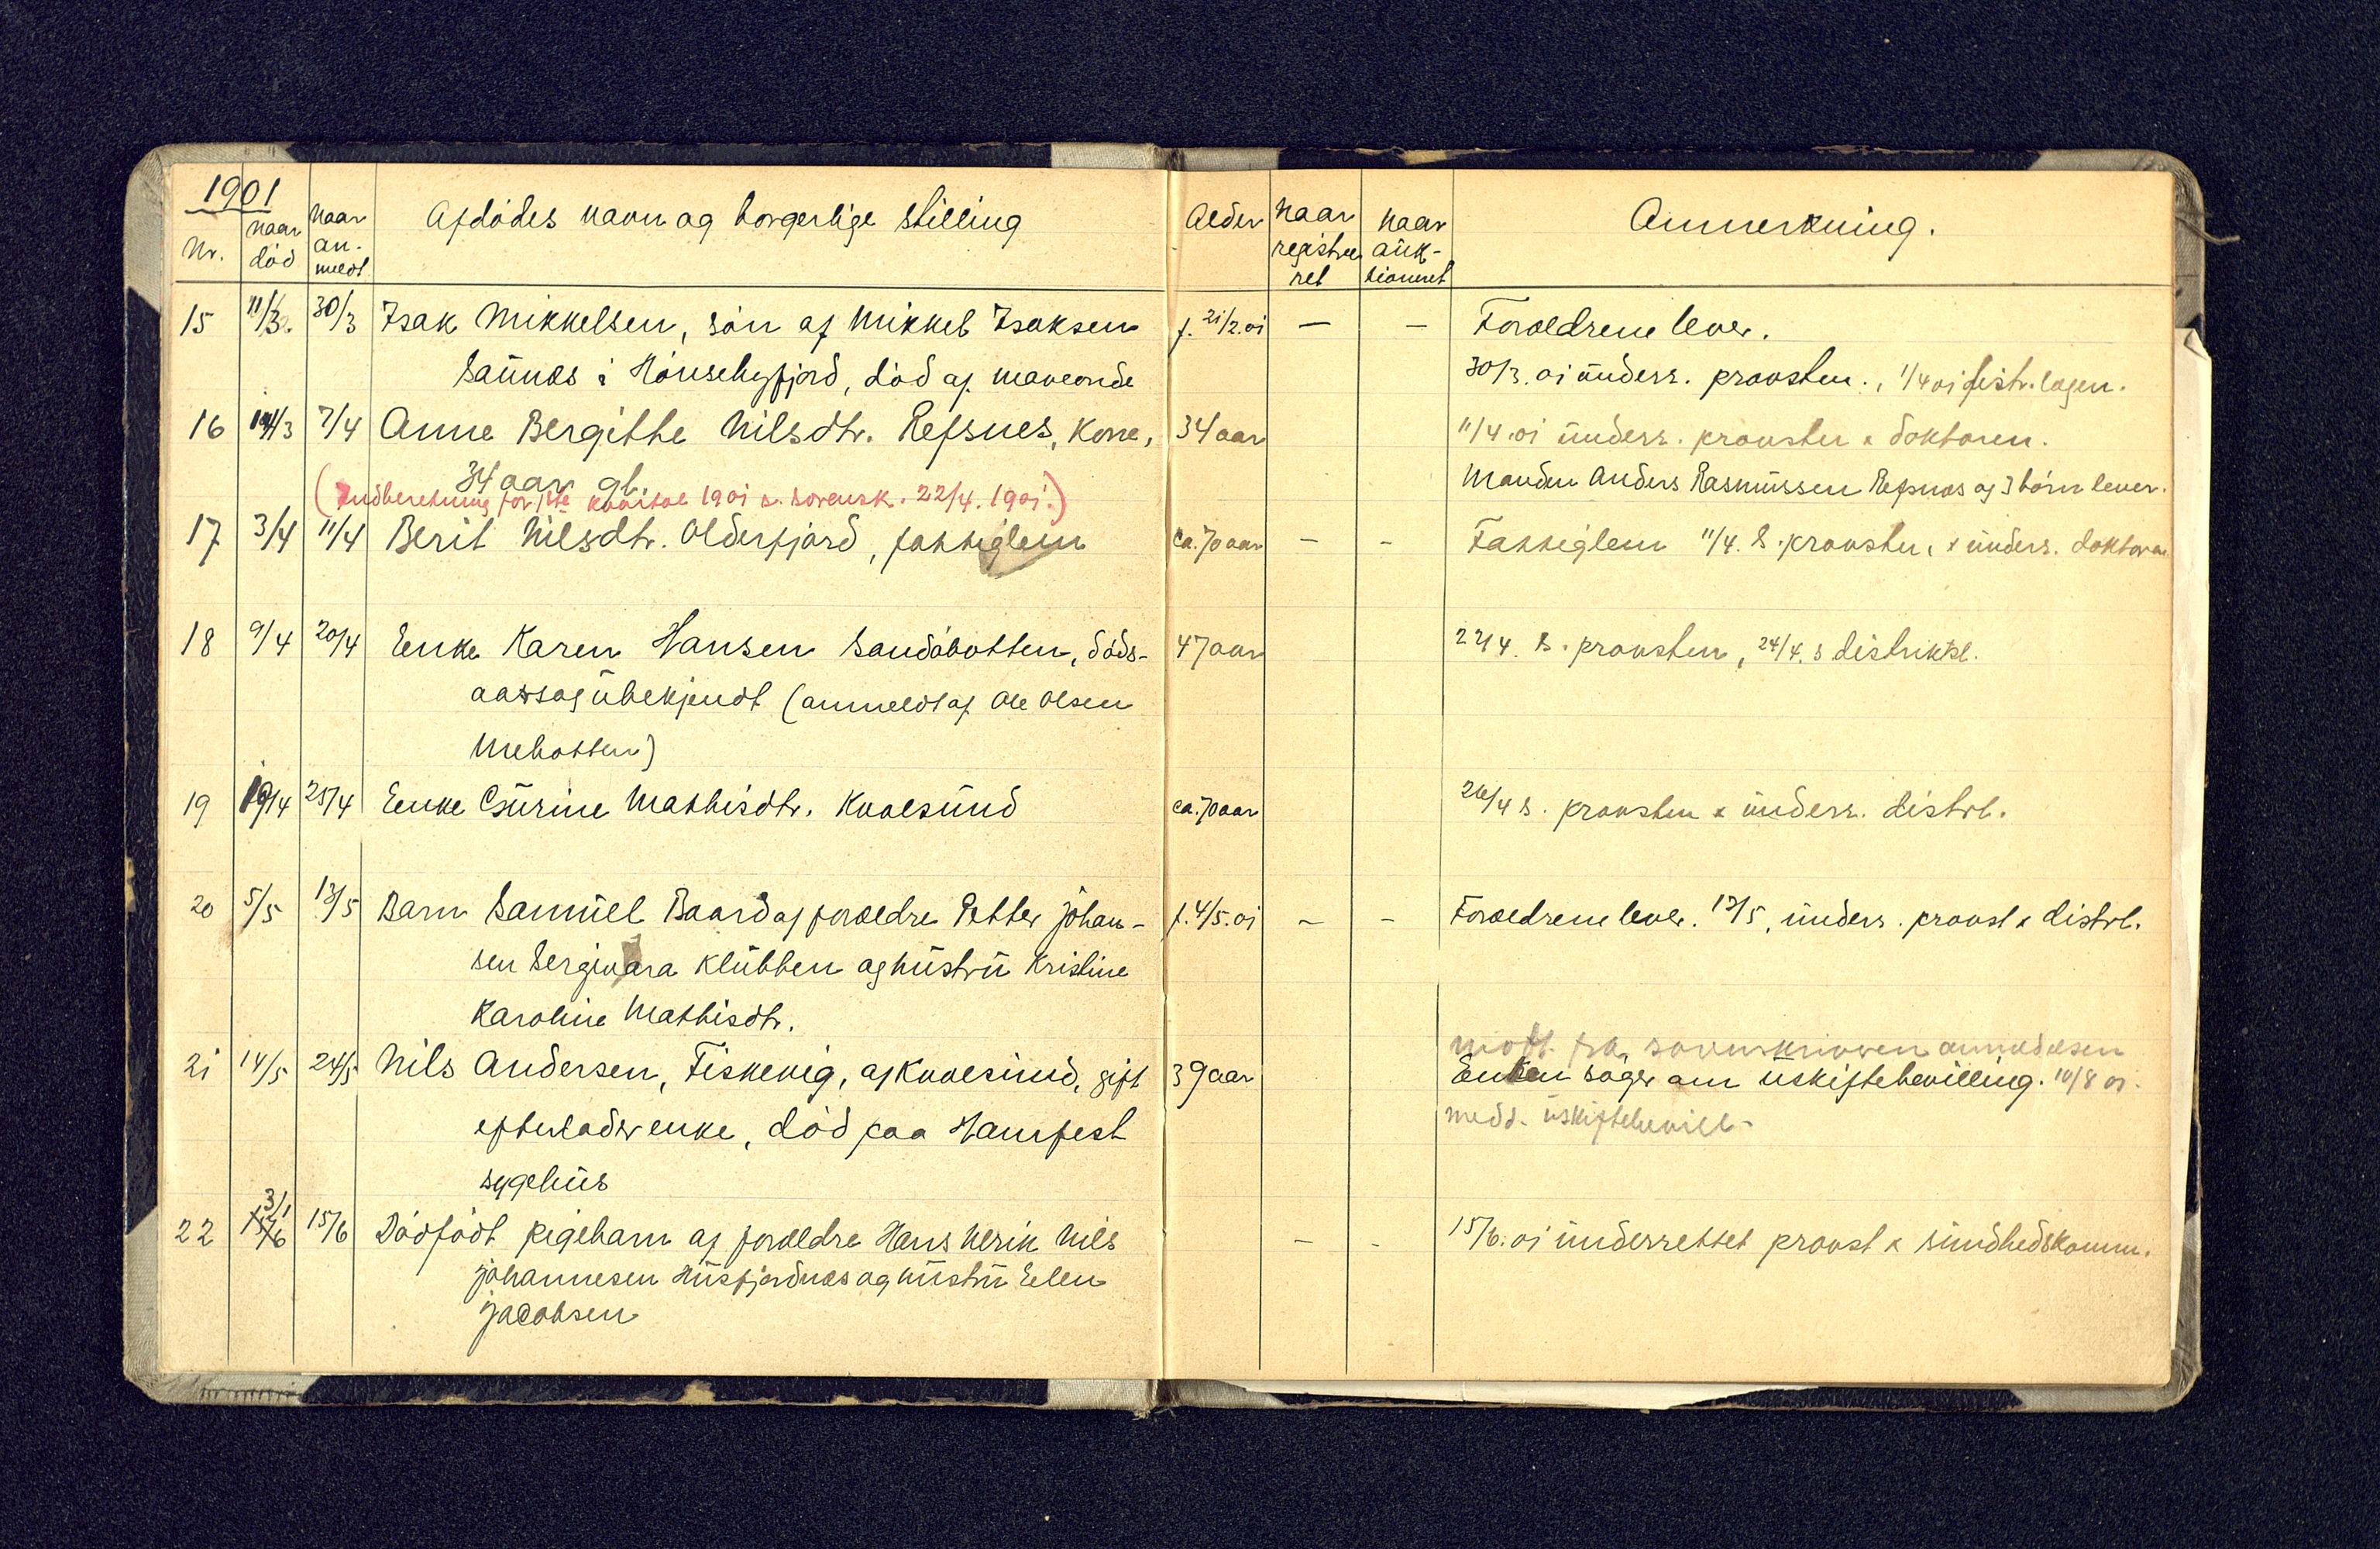 1901
Nr. | naar død | naar anmeldt | Afdødes navn og borgerlige stilling | Alder | naar registreret | naar auktioneret | Anmerkning.
15 | 11/3. | 30/3 | Isak Mikkelsen, søn af Mikkel Isaksen | f. 21/2.01 | — | — | Forældrene lever.
Saunes i Hønsebyfjord, død af maveonde | 30/3.01 underr. provsten., 1/4 01 distr.lægen.
16 | 14/3 | 7/4 | Anne Bergithe Nilsdtr. Refsnes, kone, | 34 aar | 11/4.01 underr. provsten & doktoren.
34 aar gl. | Manden Anders Rasmussen Refsnæs og 3 børn lever.
(Indberetning for 1ste kvartal 1901 s. sorensk. 22/4. 1901.)
17 | 3/4 | 11/4 | Berit Nilsdtr. Olderfjord, fattiglem | ca. 70 aar | – | – | Fattiglem 11/4. s. provsten, & underr. doktoren
18 | 9/4 | 20/4 | Enke Karen Hansen Sandøbotten, døds- | 47 aar | 22/4. s. provsten, 24/4. s distriktsl.
aarsag ubekjendt (anmeldt af Ole Olsen
Mebotten)
19 | 19/4 | 25/4 | Enke Gurine Mathisdtr. Kvalsund | ca. 70 aar | 26/4 s. provsten & underr. distrl.
20 | 5/5 | 13/5 | Barn Samuel Baard af forældre Petter Johan- | f. 4/5.01 | – | – | Forældrene lever. 13/5, underr. provst & distrl.
sen Sergivara Klubben og hustru Kristine
Karoline Mathisdtr.
21 | 14/5 | 24/5 | Nils Andersen, Fiskevig, af Kvalsund, gift | 39 aar | mott. fra sorenskriveren anmeldelsen
Enken søger om uskiftebevilling. 10/8 01.
efterlader enke, død paa Hamrfest | medd. uskiftebevill-
sygehus
22 | 3/1 15/6 | 15/6 | Dødfødt pigebarn af forældre Hans Henrik Nils | – | – | 15/6.01 underrettet provst & sundhedskomm.
Johannesen Husfjordnæs og hustru Ellen
Jacobsen